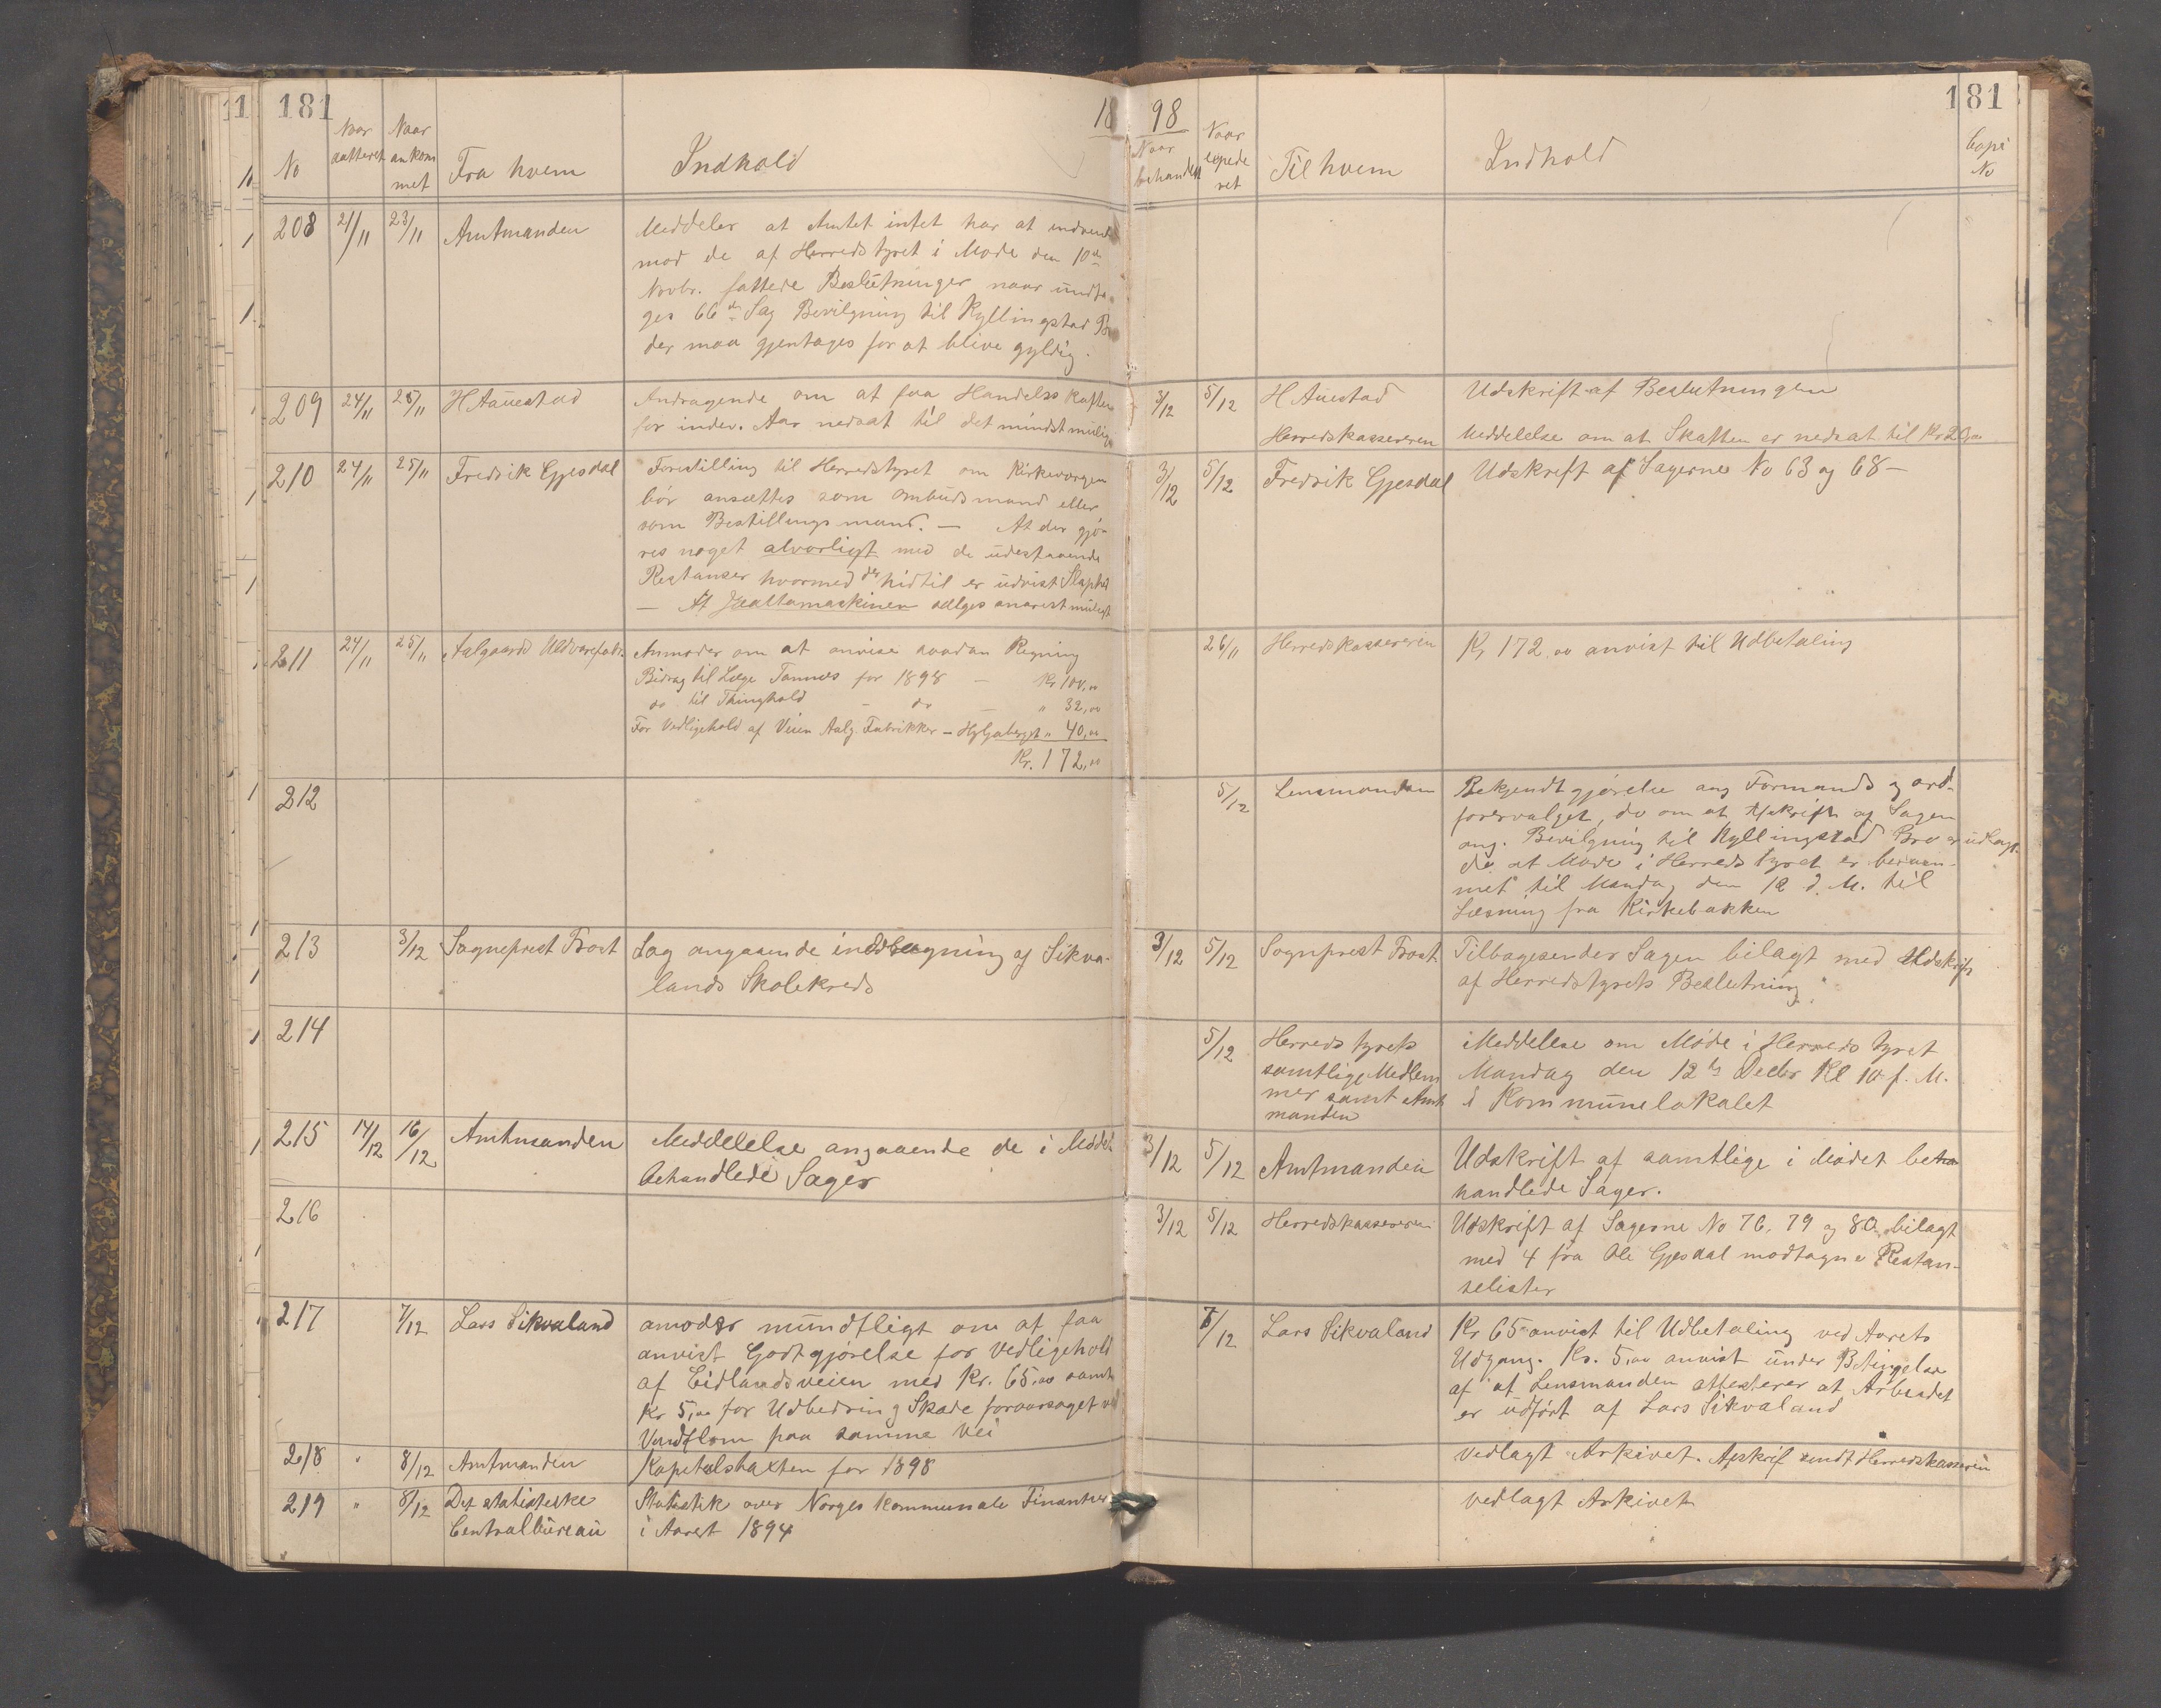 181
18
98
181
No
Naar datteret
Naar ankom met
Fra hvem
Indhold
Naar behandlet
Naar expede ret
Til hvem
Indhold
Copi No
208 21/11 23/11 Amtmanden
Meddeler at Amtet intet har at indvend
mod de af Herredstyret i Møde den 10de
Novbr. fattede Beslutninger naar undta-
ges 66de Sag Bevilgning til Kyllingstad Br
der maa gjentages for at blive gyldig.
209 24/11 25/11 H Auestad
Andragende om at faa Handelsskatten
for indev. Aar nedsat til det mindst mulige
3/12 5/12 H Auestad Udskrift af Beslutningen
Herredskassereren Meddelelse om at Skatten er nedsat til Kr 20,00
210 24/11 25/11 Fredrik Gjesdal
Forestilling til Herredstyret om Kirkevergen
bør ansættes som Ombudsmand eller
som Bestillingsmand. — At der gjø-
res noget alvorligt med de udestaaende
Restanser hvormed der hidtil er udvist Slaphed
— At Jæaltamaskinen sælges snarest muligt
3/12 5/12 Fredrik Gjesdal Udskrift af Sagerne No 63 og 68 —
211 24/11 25/11 Aalgaards Uldvarefabr.
Anmoder om at anvise saadan Regning
Bidrag til Læge Tannæs for 1898 — Kr 100,00
do til Thinghold — do — " 32,00
For Vedligehold af Veien Aalg. Fabrikker — " 40,00
Kr. 172,00
26/11 Herredskassereren Kr 172,00 anvist til Udbetaling
212
5/12 Lensmanden
Bekjendtgjørelse ang Formands og ord-
førervalget, do om at Afskrift af Sagen
ang. Bevilgning til Kyllingstad Bro er udlagt.
do at Møde i Herredstyret er beram-
met til Mandag den 12 d. M. til
Læsning fra Kirkebakken
213 3/12 Sogneprest Frost
Sag angaaende inddragning af Sikva-
lands Skolekreds
3/12 5/12 Sognprest Frost
Tilbagesender Sagen bilagt med Udskrift
af Herredstyrets Beslutning.
214
5/12 Herredstyrets
samtlige Medlem
mer samt Amt
manden
Meddelelse om Møde i Herredstyret
Mandag den 12te Decbr Kl 10 f. M.
i Kommunelokalet
215 14/12 16/12 Amtmanden
Meddelelse angaaende de i Mødet
behandlede Sager
3/12 5/12 Amtmanden
Udskrift af samtlige i Mødet be
handlede Sager.
216
3/12 5/12 Herredskassereren
Udskrift af Sagerne No 76, 79 og 80 bilagt
med 4 fra Ole Gjesdal modtagne Restan-
selister
217 7/12 Lars Sikvaland
amoder mundtligt om at faa
anvist Godtgjørelse for Vedligehold
af Eidlandsveien med Kr. 65,00 samt
Kr 5,00 for Udbedring Skade foraarsaget ved
Vandflom paa samme Vei
7/12 Lars Sikvaland
Kr 65 anvist til Udbetaling ved Aarets
Udgang. Kr. 5,00 anvist under Betingelse
af at Lensmanden attesterer at Arbeidet
er udført af Lars Sikvaland
218 " 8/12 Amtmanden Kapitelstaxten for 1898
Vedlagt Arkivet. Afskrif sendt Herredskasseren
219 " 8/12 Det statistiske
Centralbureau
Statistik over Norges Kommunale Finantser
i Aaret 1894
vedlagt Arkivet